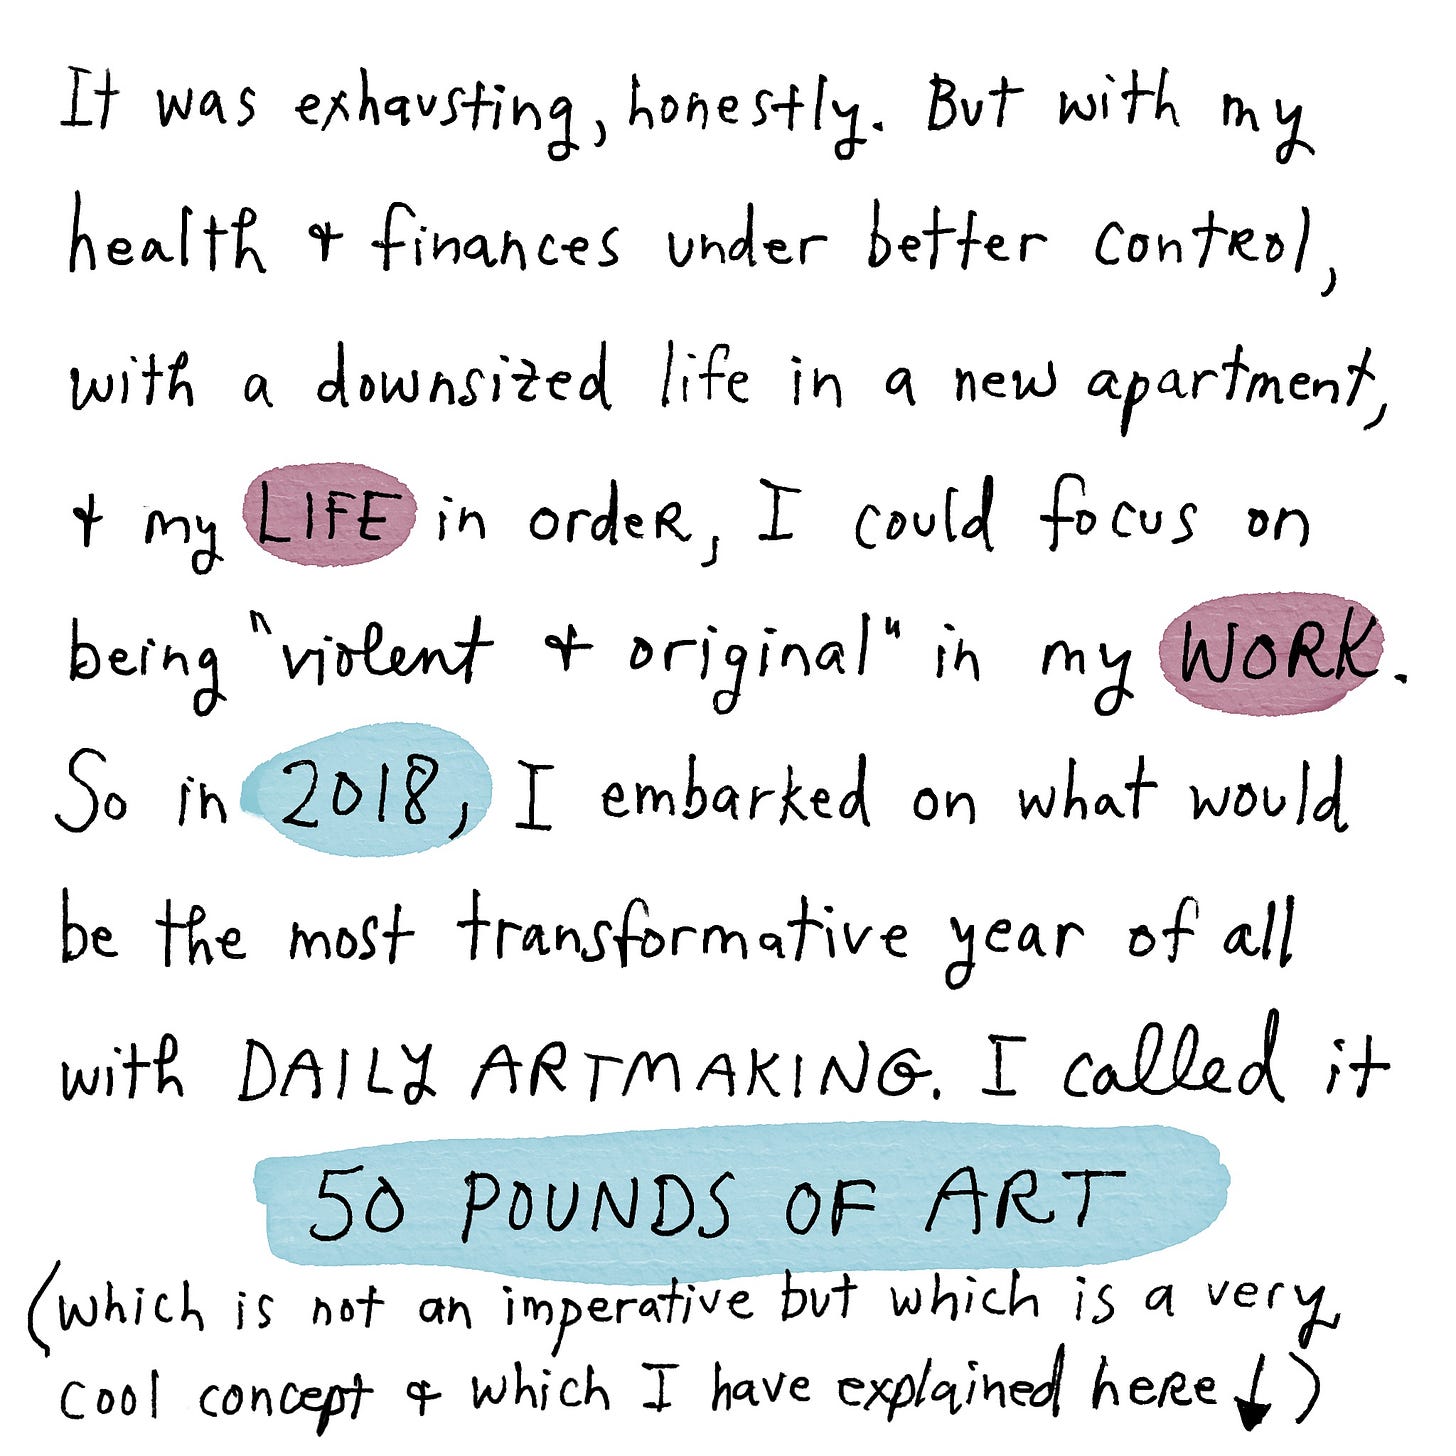 It was exhausting, honestly. But with my
health & finances under better control,
with a downsized life in a new apartment,
& my LIFE in order, I could focus on
being "violent & original" in my WORK.
So in 2018, I embarked on what would
be the most transformative year of all
with DAILY ARTMAKING. I called it
50 POUNDS OF ART
(which is not an imperative but which is a very
cool concept & which I have explained here ↓)